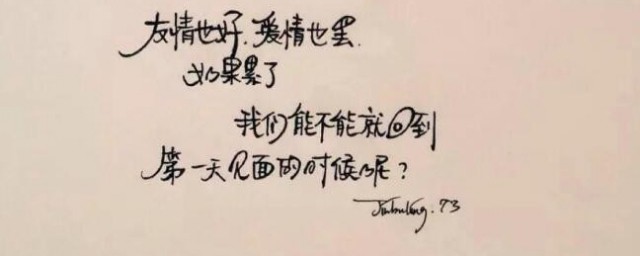 友情也好.爱情也罢.
如果累了
我们能不能就回到
第一天见面的时候呢?
73